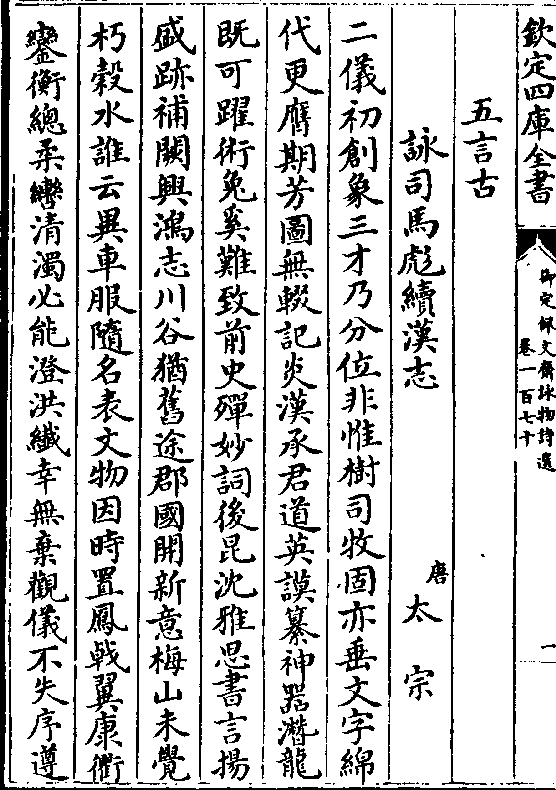 欽定四庫全書
御定佩文齋詠物詩選
卷一百七十
一
五言古
詠司馬彪續漢志
唐太宗
二儀初創象三才乃分位非惟樹司牧固亦垂文字綿
代更膺期芳圖無輟記炎漢承君道英謨纂神器潛龍
既可躍術兔奚難致前史殫妙詞後昆沈雅思書言揚
盛跡補闕興鴻志川谷猶舊途郡國開新意梅山未覺
朽榖水誰云異車服隨名表文物因時置鳳戟翼康衢
鑾衡總柔轡清濁必能澄洪纖幸無棄觀儀不失序遵